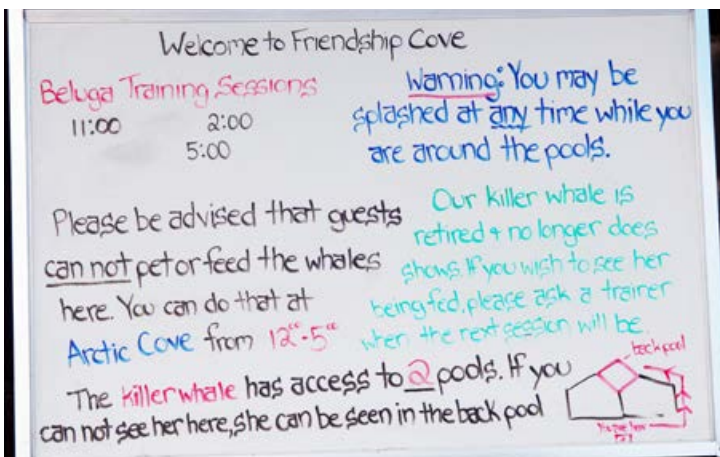 Welcome to Friendship Cove
Beluga Training Sessions
11:00 2:00
5:00
Warning: You may be
splashed at any time while you
are around the pools.
Please be advised that guests
can not pet or feed the whales
here. You can do that at
Arctic Cove from 12⁰⁰-5⁰⁰
Our killer whale is
retired + no longer does
shows. If you wish to see her
being fed, please ask a trainer
when the next session will be.
The killer whale has access to 2 pools. If you
can not see her here, she can be seen in the back pool
back pool
You are here